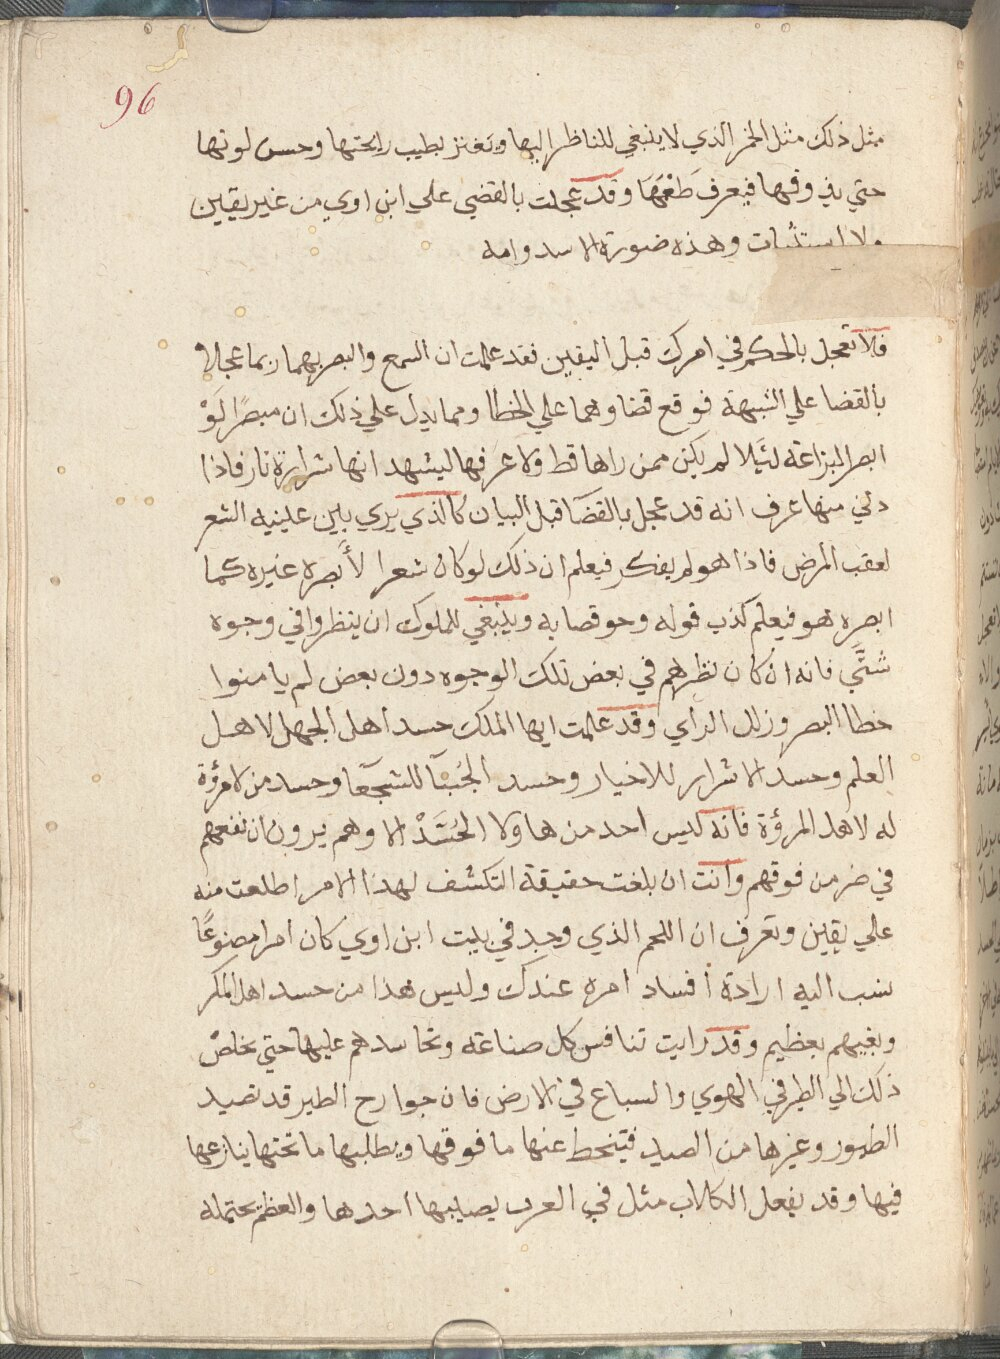 96
مثل ذلك مثل الخمر الذي لا ينبغي للناظر اليها ويغتر بطيب رايحتها وحسن لونها
حتي يذوقها فيعرف طَعْمَهَا وقد عجلت بالقضي علي ابن اوي من غير يقين
ولا استثبات وهذه صورة الاسد وامه
فلا تعجل بالحكم في امرك قبل اليقين فقد علمت ان السمع والبصر بهما ربما عجالا
بالقضا علي الشبهة فوقع قضاوهما علي الخطا ومما يدل علي ذلك ان مبصرًا لَوْ
ابصر اليراعة لَيَلا لم يكن ممن راها قط ولا عرفها ليشهد انها شرارة نار فاذا
دني منها عرف انه قد عجل بالقضآ قبل البيان كالذي يري بين عينيه الشعر
لعقب المرض فاذا هو لم يفكر فيعلم ان ذلك لو كان شعرا لأَبصره غيره كما
ابصره هو فيعلم كذب قوله وينبغي للملوك ان ينظروا في وجوه
شتَّي فانه ان كان نظرهم في بعض تلك الوجوه دون بعض لم يامنوا
خطا البصر وزلل الراي وقد علمت ايها الملك حسد اهل الجهل لاهل
العلم وحسد الاشرار للاخيار وحسد الجُبنآ للشجعآ وحسد من لا مرؤة
له لاهل المرؤة فانه ليس احد من هاولا الحُسَّدْ الا وهم يرون ان نفعهم
في ضر من فوقهم وانت ان بلغت حقيقة التكشف لهذا الامر اطلعت منه
علي يقين وتعرف ان اللحم الذي وجد في بيت ابن اوي كان امرا مصنوعًا
نسب اليه ارادة أفساد امره عندك وليس هذا من حسد اهل المكر
وبغيهم بعظيم وقد رايت تنافس كل صناعة وتحاسدهم عليها حتي يخلص
ذلك الي الطير في الهوي والسباع في الارض فان جوارح الطير قد تصيد
الطيور وغيرها من الصيد فينحط عنها ما فوقها ويطلبها ما تحتها ينازعها
فيها وقد يفعل الكلاب مثل في يصيبها احدها والعظم يحتمله